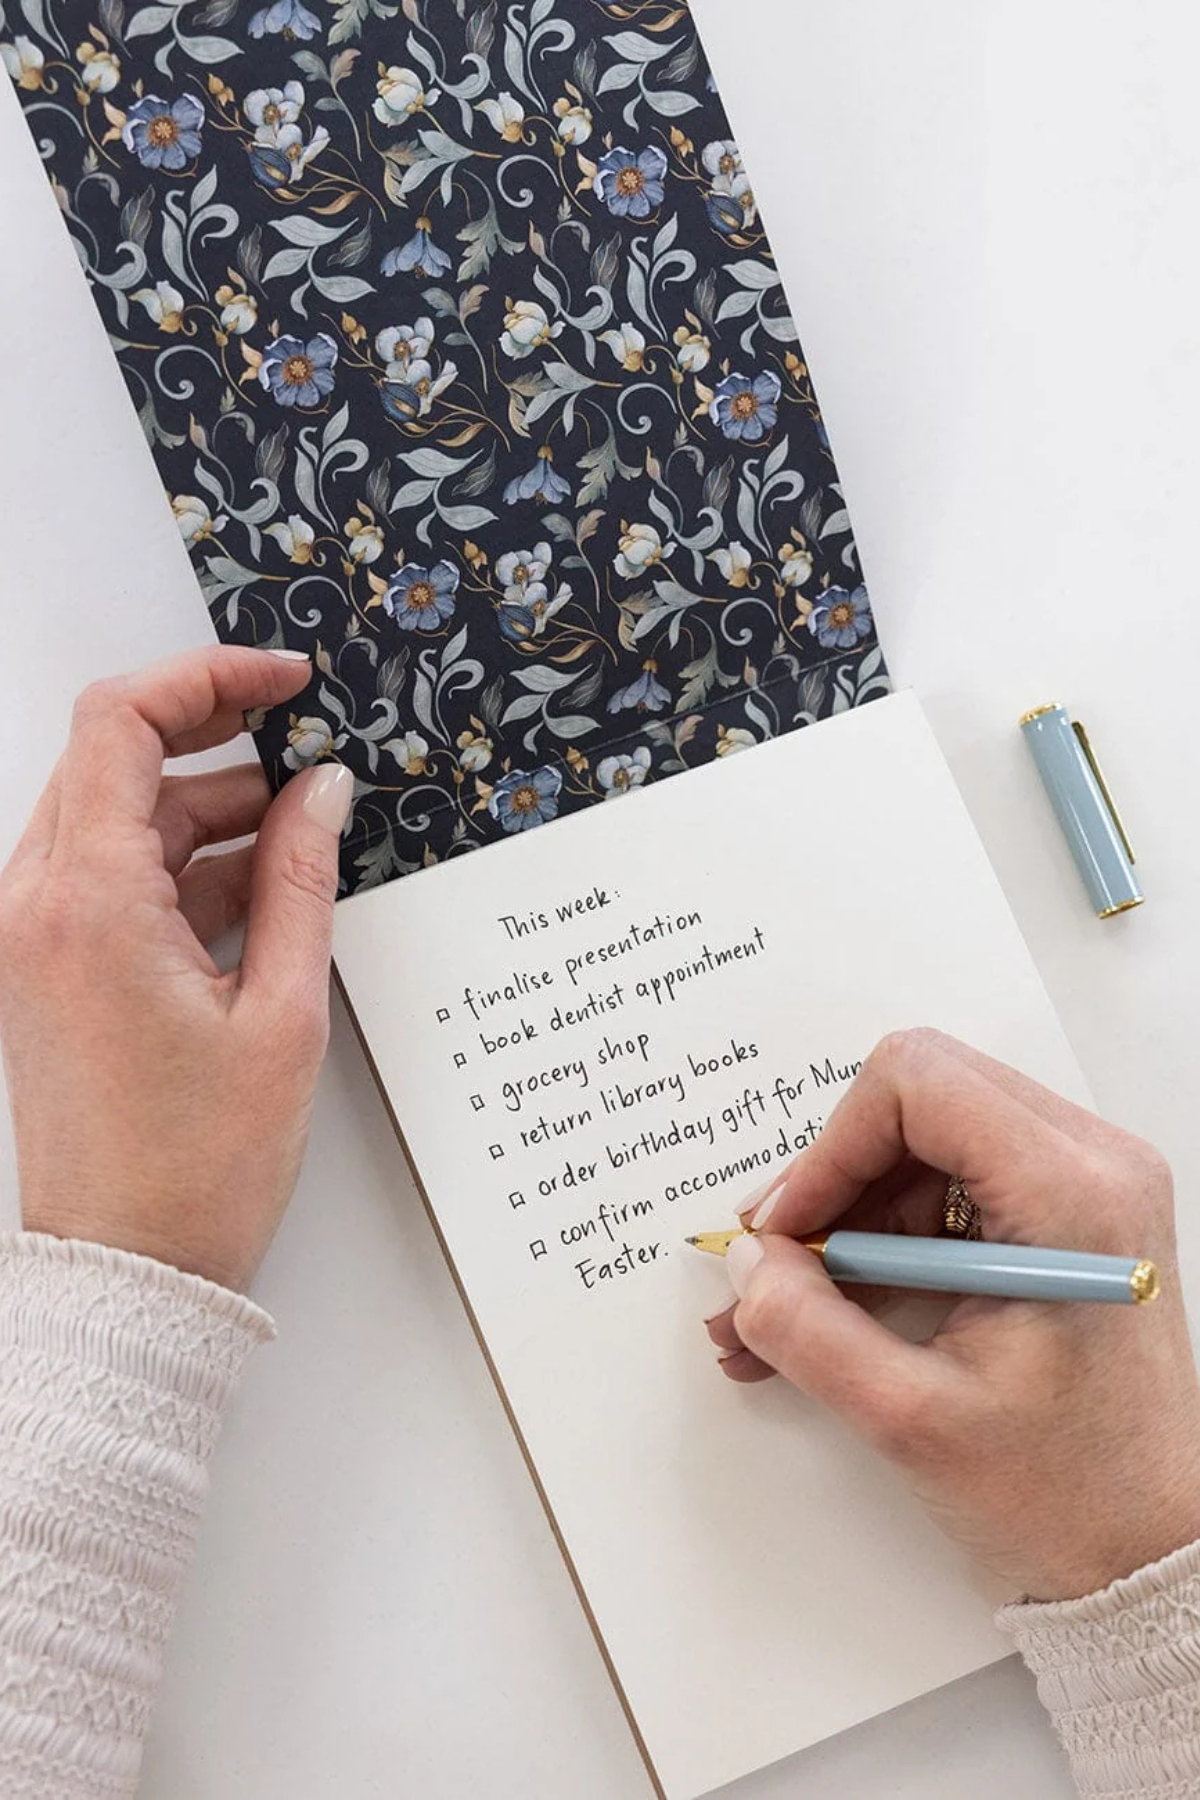 This week:
finalise presentation
book dentist appointment
grocery shop
return library books
order birthday gift for
confirm
Easter.